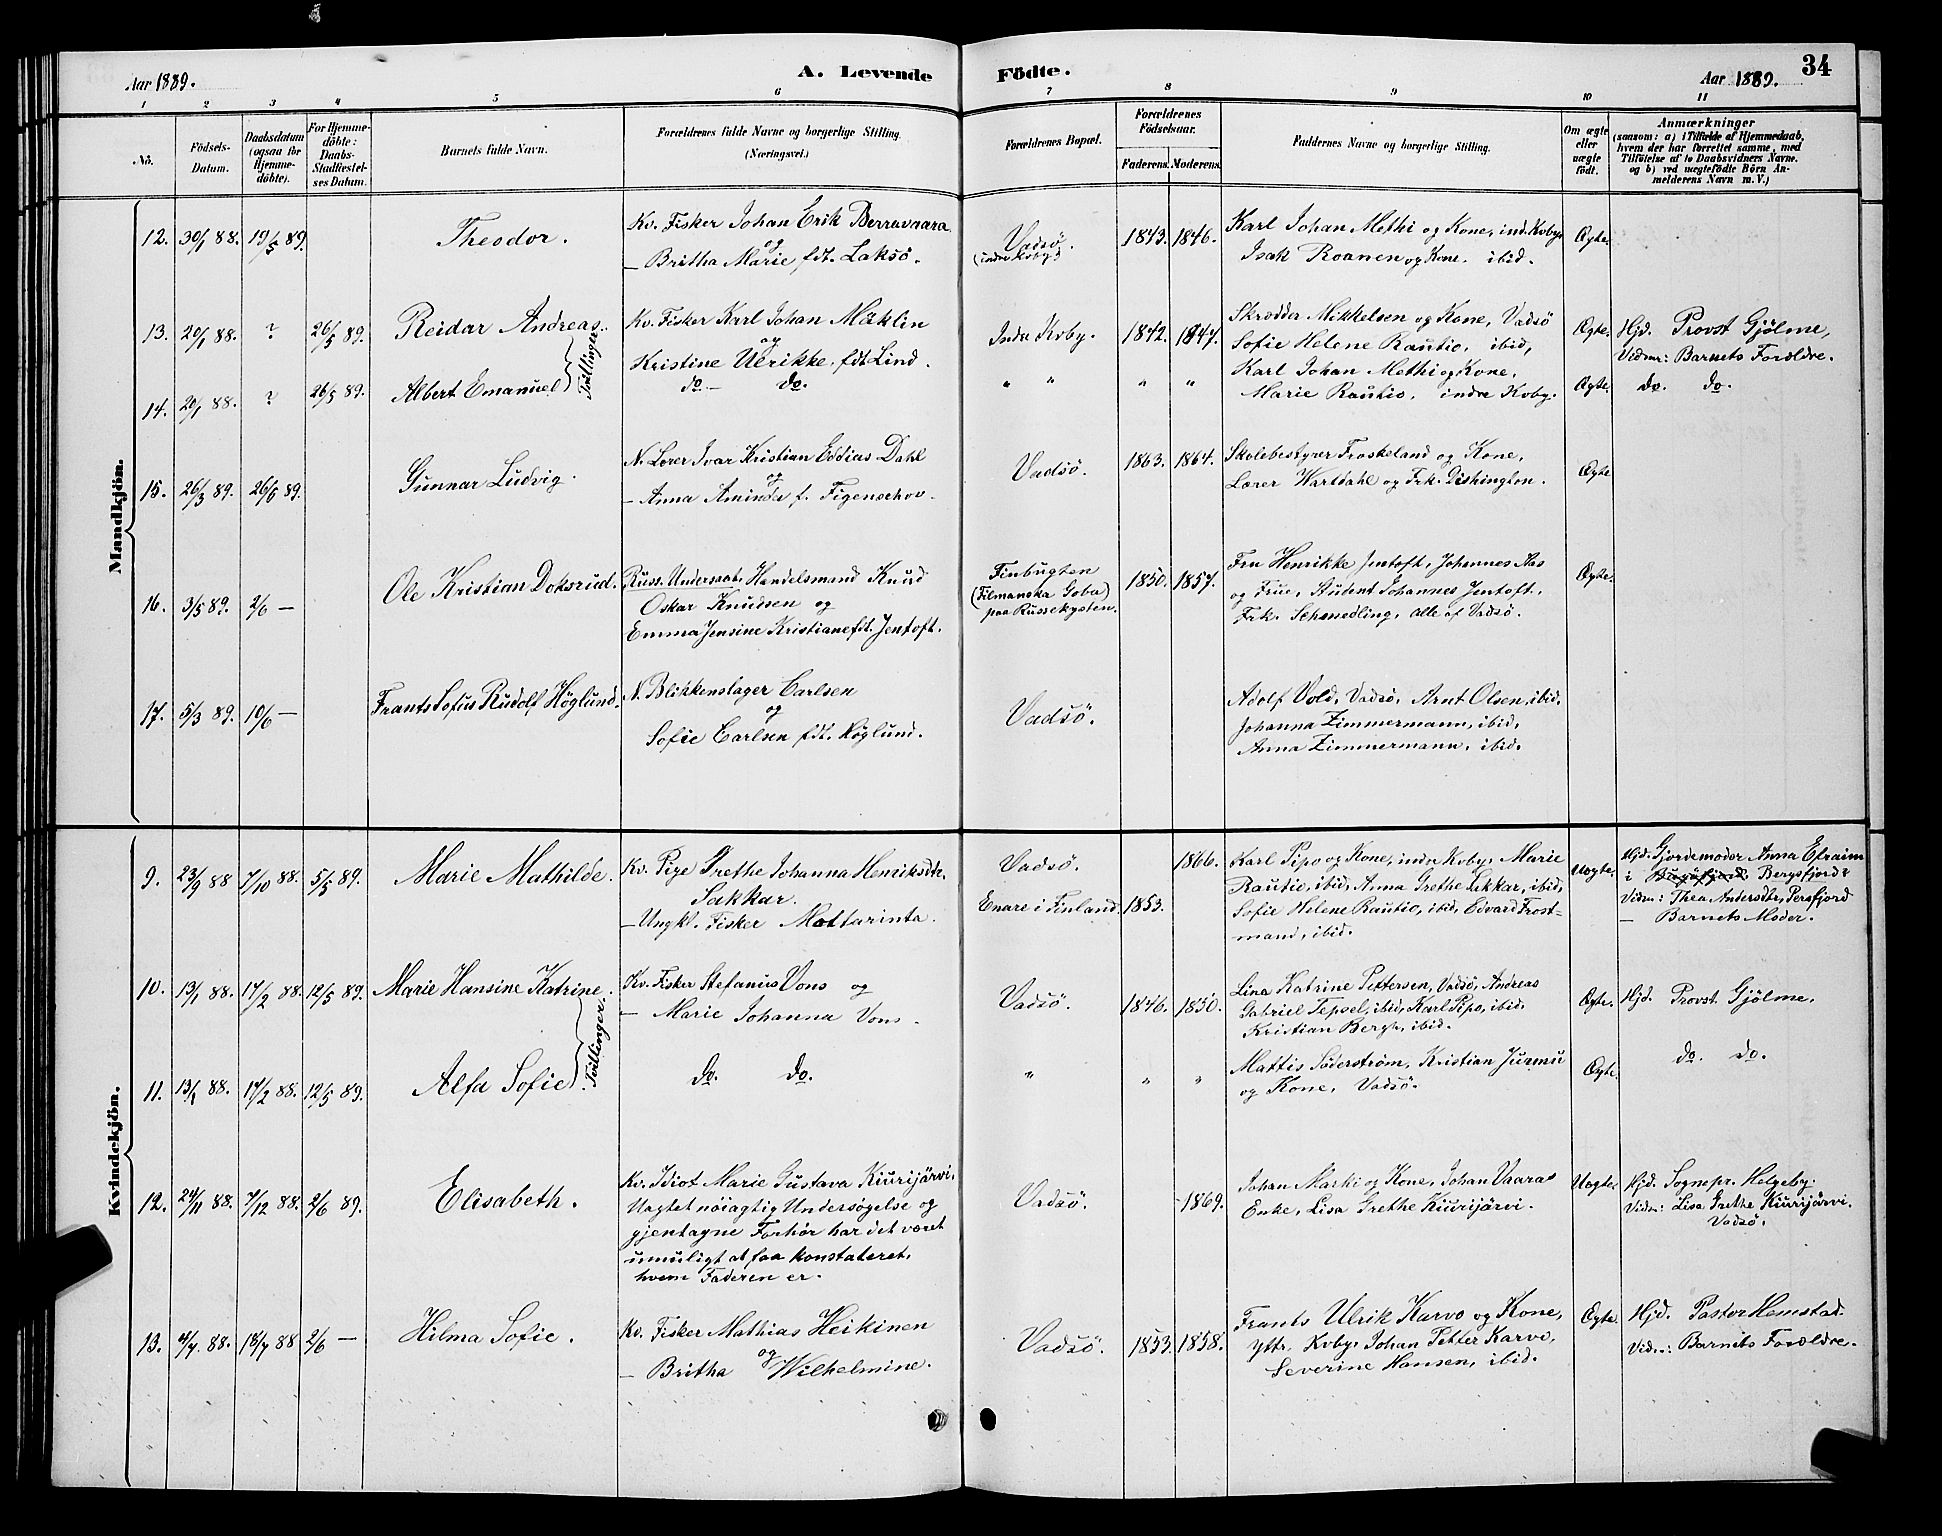 Aar 1889.
A. Levende Födte.
Aar 1889.
34
1 2 3 4 5 6 7 8 9 10 11
No.
Födsels-Datum.
Daabsdatum (ogsaa for Hjemmedöbte).
For Hjemmedöbte: Daabs-Stadfæstelses Datum.
Barnets fulde Navn.
Forældrenes fulde Navne og borgerlige Stilling. (Næringsvei.)
Forældrenes Bopæl.
Forældrenes Födselsaar.
Faderens.
Moderens.
Faddernes Navne og borgerlige Stilling.
Om ægte eller uægte födt.
Anmærkninger
(saasom: a) i Tilfælde af Hjemmedaab, hvem der har forrettet samme, med Tilföielse af to Daabsvidners Navne. og b) ved uægtefödte Börn Anmelderens Navn m. V.)
Mandkjön.
12. 30/1 88. 19/5 89. Theodor.
Kv. Fisker Johan Erik Berravaara
og
— Britha Marie fdt. Laksø.
Vadsø.
(indre Kvby.)
1843. 1846.
Karl Johan Methi og Kone, ind. Kvby.
Isak Roanen og Kone. ibid.
Ægte.
13. 20/1 88. ? 26/5 89. Reidar Andreas.
Kv. Fisker Karl Johan Mäklin
og
Kristine Ulrikke, fdt. Lind.
Indre Kvby. 1842. 1847.
Skrædder Mikkelsen og Kone, Vadsø
Sofie Helene Rautio, ibid,
Ægte.
Hjd. Provst Gjölme,
Vidner: Barnets Forældre.
Tvillinger
14. 20/1 88. ? 26/5 89. Albert Emanuel
do — do.
" " " "
Karl Johan Methi og Kone,
Marie Rautio, indre Kvby.
Ægte. do. do.
15. 26/3 89. 26/5 89. Gunnar Ludvig.
N. Lærer Ivar Kristian Eddias Dahl
og
— Anna Aminda f. Figenschov.
Vadsø. 1863. 1864.
Skolebestyrer Froskeland og Kone,
Lærer Wartdahl og Frk. Dishington.
Ægte
16. 3/5 89. 2/6 — Ole Kristian Doksrud.
Russ. Undersaat. Handelsmand Knud
Oskar Knudsen og
Emma Jensine Kristiane fdt. Jentoft.
Finbugten
(Filmanska Goba)
paa Russekysten.
1850. 1857.
Fru Henrikke Jentoft, Johannes Aas
og Frue, Student Johannes Jentoft,
Frk. Schanedling, alle af Vadsø.
Ægte.
17. 5/3 89. 10/6 — Frants Sofus Rudolf Höglund.
N. Blikkenslager Carlsen
og
Sofie Carlsen fdt. Höglund.
Vadsø.
Adolf Vold, Vadsø, Arnt Olsen, ibid,
Johanna Zimmermann, ibid,
Anna Zimmermann, ibid.
Kvindekjön.
9. 23/9 88 7/10 88. 5/5 89. Marie Mathilde.
Kv. Pige Grethe Johanna Henriksdtr.
Sakkar.
— Ungkl. Fisker Mattarinta.
Vadsø. 1866.
Enare i Finland. 1853.
Karl Pipo og Kone, indre Kvby, Marie
Rautio, ibid, Anna Grethe Sikkar, ibid,
Sofie Helene Rautio, ibid, Edvard Frost-
mand, ibid.
Uægte.
Hjd. Gjordemoder Anna Efraim
i Bergsfjord.
Vidn: Thea Andersdtr, Persfjord
— Barnets Moder.
10. 13/1 88. 17/2 88. 12/5 89. Marie Hansine Katrine.
Kv. Fisker Stefanus Vons og
— Marie Johanna Vons.
Vadsø. 1846. 1850.
Lina Katrine Pettersen, Vadsø, Andreas
Gabriel Tepsel, ibid, Karl Pipo, ibid,
Kristian Bergh, ibid.
Ægte. Hjd. Provst Gjölme.
Tvillinger.
11. 13/1 88. 17/2 88. 12/5 89. Alfa Sofie
do. do.
" " "
Mattis Söderström, Kristian Jurmu
og Kone, Vadsø.
Ægte.
do. do.
12. 24/11 88. 7/12 88. 2/6 89. Elisabeth.
Kv. Idiot Marie Gustava Kiurijärvi.
Uagtet nöiagtig Undersøgelse og
gjentagne Forhör har det været
umuligt at faa konstateret,
hvem Faderen er.
Vadsø. 1869.
Johan Marki og Kone, Johan Vaaras
Enke, Lisa Grethe Kiurijärvi.
Uægte
Hjd. Sognepr. Helgeby.
Vidn: Lisa Grethe Kiurijärvi.
Vadsø.
13. 4/7. 88. 15/7 88 2/6 — Hilma Sofie.
Kv. Fisker Mathias Heikinen
og
— Britha Wilhelmine.
Vadsø. 1853. 1858.
Frants Ulrik Karvo og Kone,
Yttr. Kvby. Johan Petter Karvo,
Severine Hansen, ibid.
Ægte.
Hjd. Pastor Hemstad.
Vidn.: Barnets Forældre.